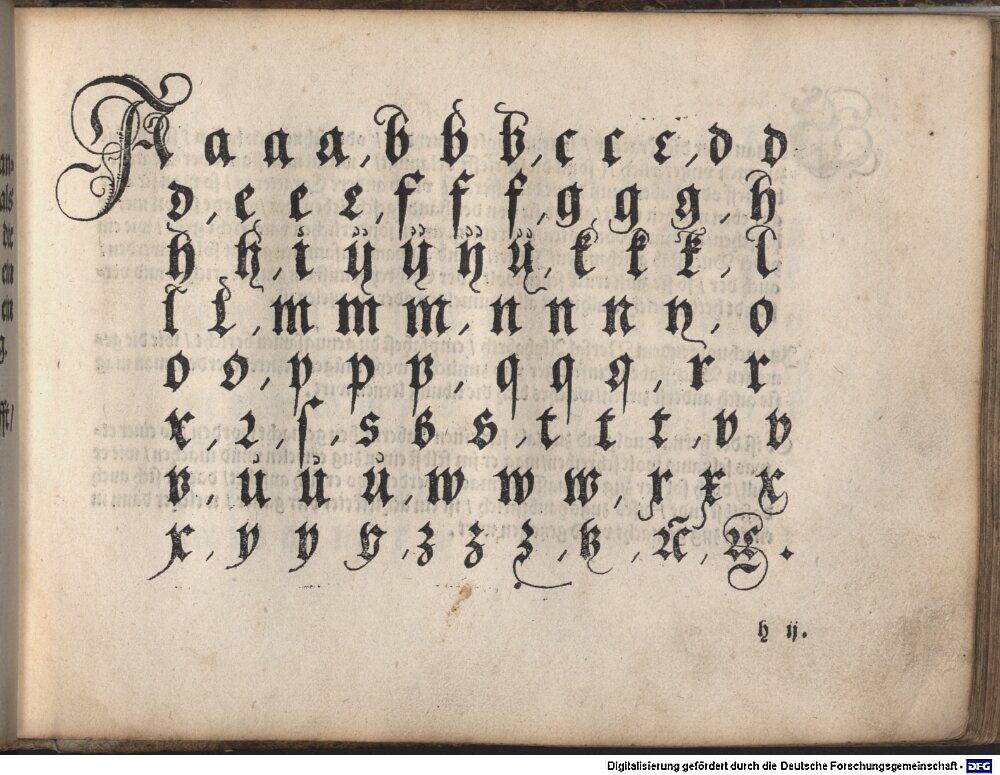 A a a a, b b b, c c c, d d
d, e e e, f f f, g g g, h
h h, i ij ij ij ü, k k k, l
l l, m m m, n n n n, o
o o, p p p, q q q, r r
r ꝛ, ſ, s s s t t t, v v
v, ú ú ú, w w w, x x x
x, y y y, z z z, tz,
h ij.
Digitalisierung gefördert durch die Deutsche Forschungsgemeinschaft - DFG